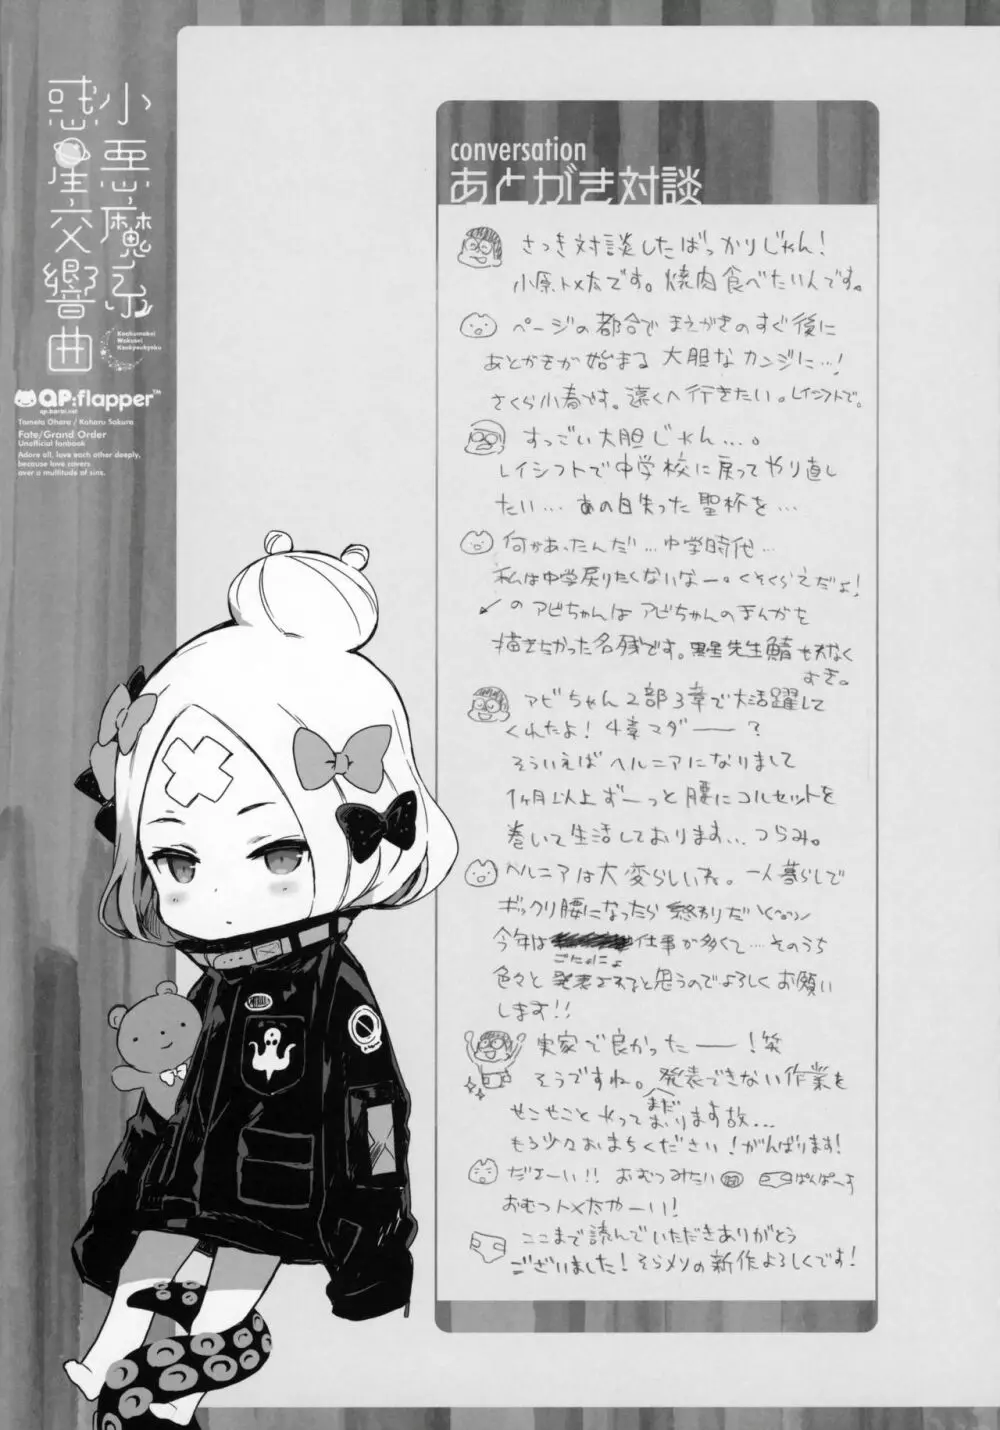 小悪魔系
惑星交響曲
Koakumakei
Wakusei
Koukyoukyoku
QP:flapper™
Tometa Ohara / Koharu Sakura
Fate/Grand Order
Unofficial fanbook
Adore all, love each other deeply,
because love covers
over a multitude of sins.
conversation
あとがき対談
さっき対談したばっかりじゃん!
小原トメ太です。焼肉食べたいんです。
ページの都合でまえがきのすぐ後に
あとがきが始まる大胆なカンジに…!
さくら小春です。遠くへ行きたい。レイシフトで。
すっごい大胆じゃん…。
レイシフトで中学校に戻ってやり直し
たい…あの日失った聖杯を…
何かあったんだ…中学時代…
私は中学戻りたくないなー。くそくらえだよ!
↙のアビちゃんはアビちゃんのまんがを
描きたかった名残です。黒星先生鯖
すき。
アビちゃん2部3章で大活躍して
くれたよ!4章マダーー?
そういえばヘルニアになりまして
1ヶ月以上ずーっと腰にコルセットを
巻いて生活しております…つらみ。
ヘルニアは大変らしいね。一人暮らしで
ギックリ腰になったら終わりだ
今年は 仕事が多くて…そのうち
ごにょにょ
色々と発表 と思うのでよろしくお願い
します!!
実家で良かったーー!笑
そうですね。発表できない作業を
せこせことやってまだおります故…
もう少々おまちください!がんばります!
だよーい!!おむつみたい ぱんぱーす
おむつトメたやーい!
ここまで読んでいただきありがとう
ございました!そらメソの新作よろしくです!